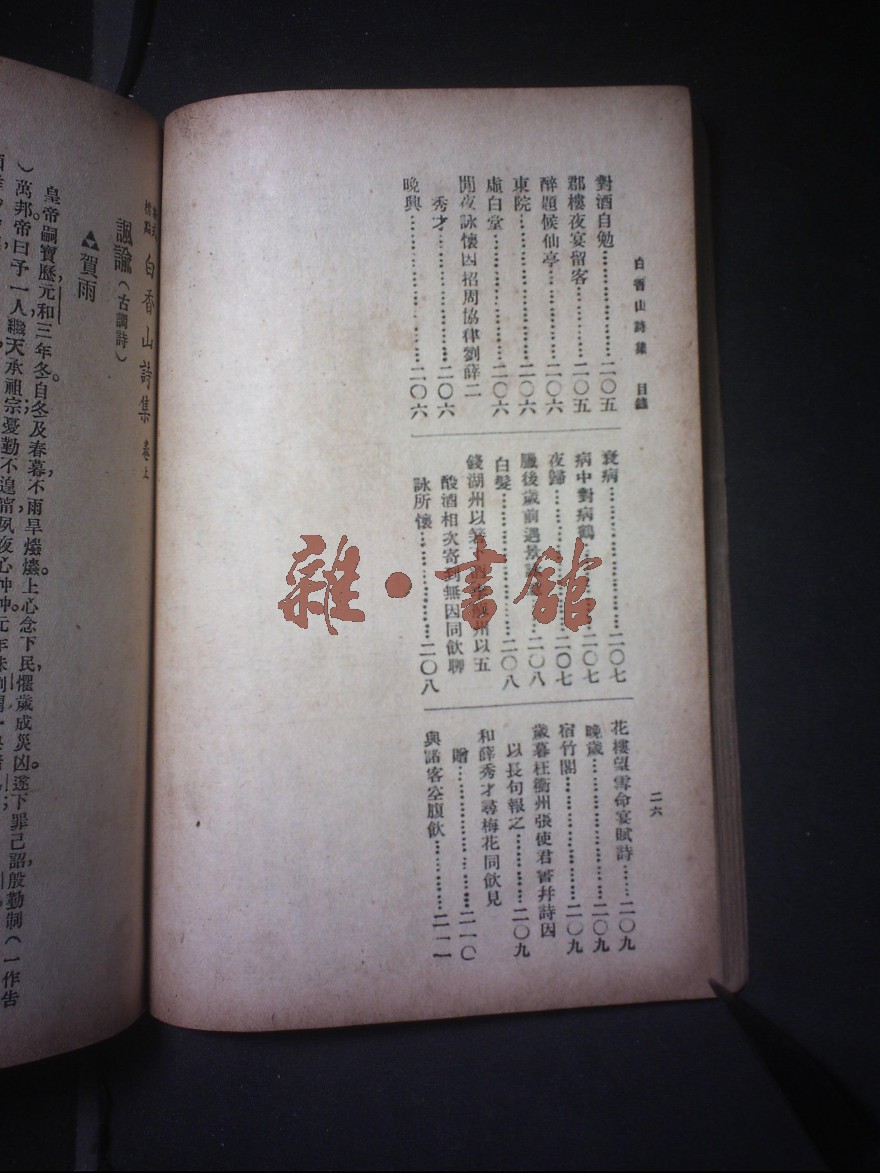 白香山詩集 目錄
二六
對酒自勉……………………二〇五
郡樓夜宴留客……………二〇五
醉題候仙亭………………二〇六
東院…………………………二〇六
虛白堂………………………二〇六
閒夜詠懷因招周協律劉薛二
秀才…………………………二〇六
晚興…………………………二〇六
衰病…………………………二〇七
病中對病鶴………………二〇七
夜歸…………………………二〇七
臘後歲前遇景……………二〇八
白髮…………………………二〇八
錢湖州以箬 州以五
酘酒相次寄到無因同飲聊
詠所懷………………………二〇八
花樓望雪命宴賦詩……二〇九
晚歲…………………………二〇九
宿竹閣………………………二〇九
歲暮枉衢州張使君書幷詩因
以長句報之………………二〇九
和薛秀才尋梅花同飲見
贈……………………………二一〇
與諸客空腹飲……………二一一
雜·書館
新式
標點
白香山詩集 卷上
諷諭(古調詩)
賀雨
皇帝嗣寶歷,元和三年冬。自冬及春暮,不雨旱爞爞。上心念下民,懼歲成災凶。遂下罪己詔,殷勤制(一作告
)萬邦。帝曰予一人,繼天承祖宗;憂勤不遑甯,夙夜心忡忡。元年